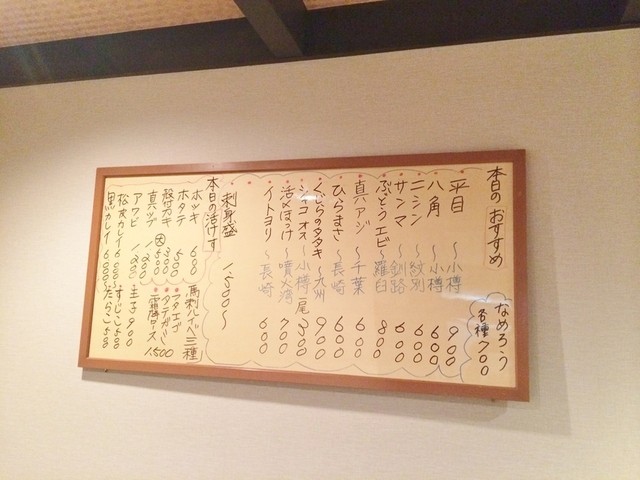 本日のおすすめ
なめろう
各種700
平目 〜小樽 900
八角 〜小樽 600
ニシン 〜紋別 600
サンマ 〜釧路 600
ぶどうエビ 〜羅臼 800
真アジ 〜千葉 600
ひらまさ 〜長崎 600
くじらのタタキ 〜九州 900
シャコオス 〜小樽 一尾 300
活〆ほっけ 〜噴火湾 700
イトヨリ 〜長崎 600
刺身盛 1,500〜
本日の活けす
ホッキ 600
ホタテ 500
殻付カキ 300
真ツブ 大 500
アワビ 1,200
松皮カレイ 6,000〜
黒カレイ 6,000〜
馬刺ルイベ三種
フタエゴ
タテガミ
霜降ロース 1,500
玉子 900
すじこ 500
たらこ 500